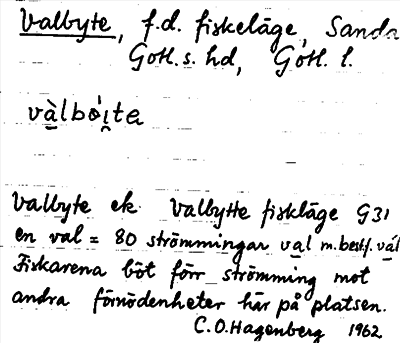 Valbyte, f.d. fiskeläge, Sanda
Gotl. s. hd, Gotl. l.
và̱lbo̍i̯te
Valbyte ek Valbytte fiskläge G31
en val = 80 strömmingar va̱l m. best f. vá̱l
Fiskarena böt förr strömming mot
andra förnödenheter här på platsen.
C.O. Hagenberg 1962